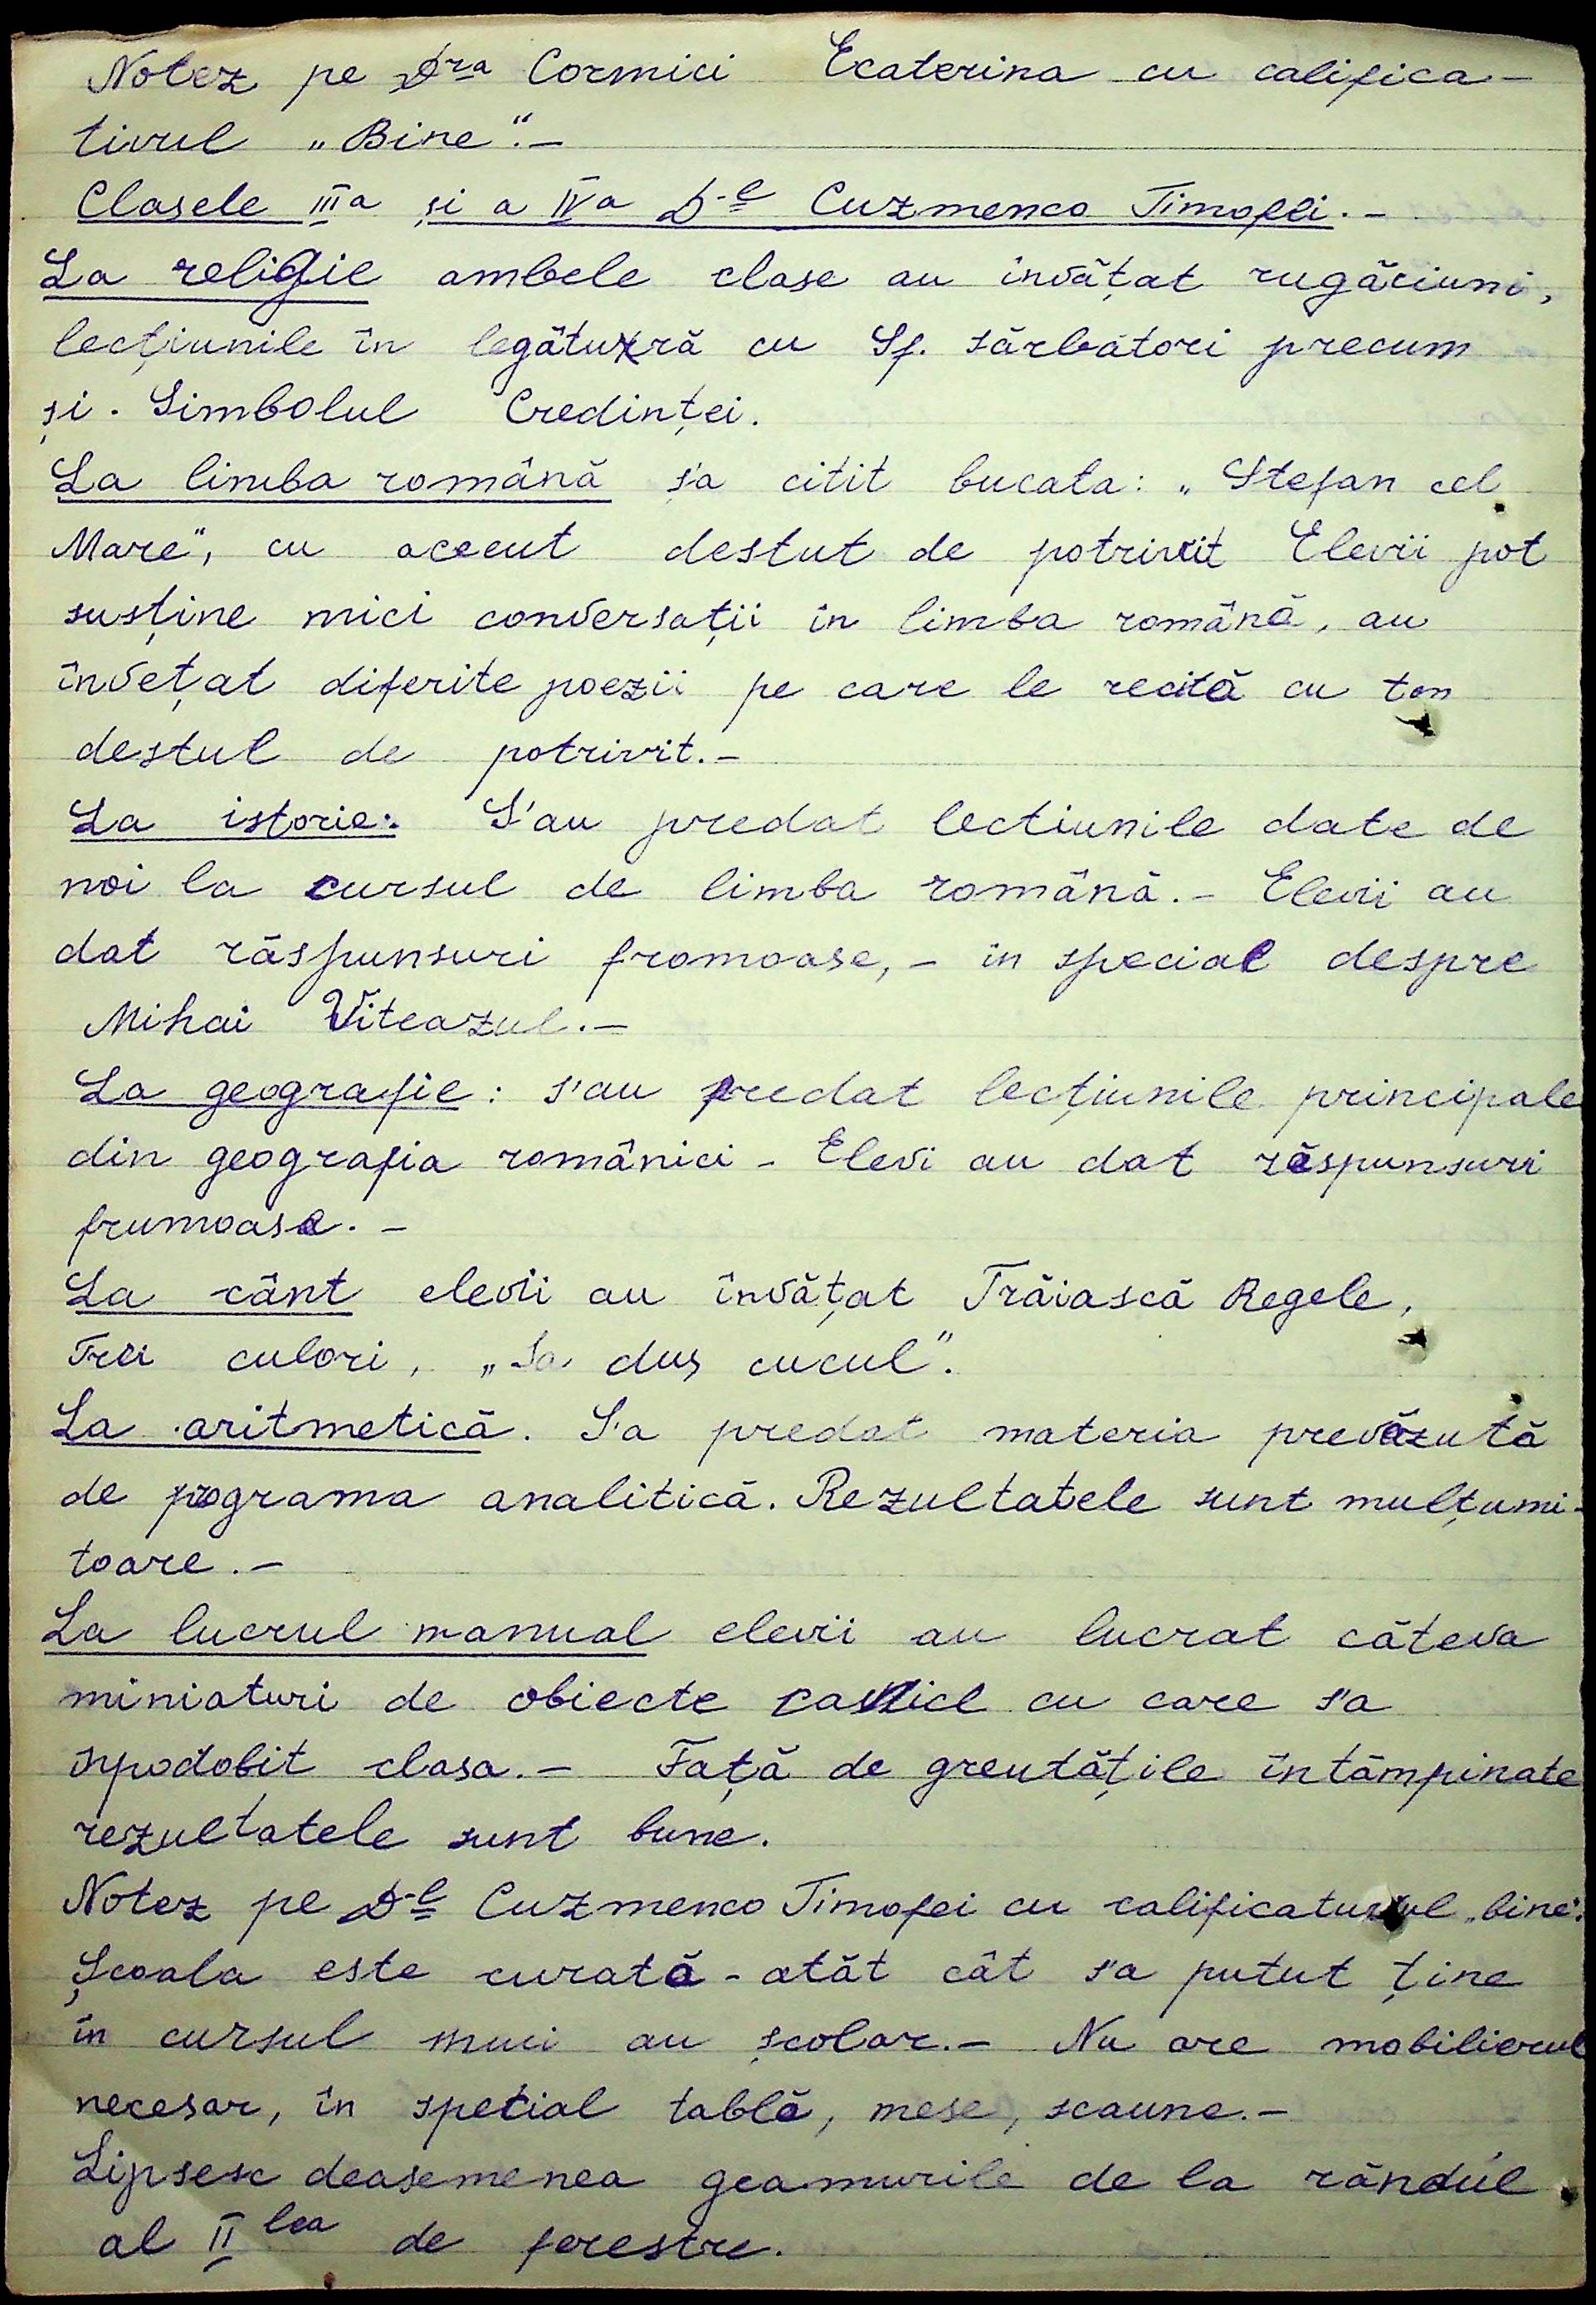 Notez pe D-ra Cormici Ecaterina cu califica-
tivul „Bine".-
Clasele III a și a IV a D-l Cuzmenco Timofei.-
La religie ambele clase au învățat rugăciuni,
lecțiunile în legătură cu Sf. sărbători precum
și. Simbolul Credinței.
La limba română s'a citit bucata: „Stefan cel
Mare", cu accent destut de potrivit Elevii pot
susține mici conversații în limba română, au
învețat diferite poezii pe care le recită cu ton
destul de potrivit.-
La istorie: S'au predat lectiunile date de
noi la cursul de limba română.- Elevii au
dat răspunsuri fromoase,- in special despre
Mihai Viteazul.-
La geografie: s'au predat lecțiunile principale
din geografia românici - Elevi au dat răspunsuri
frumoase.-
La cânt elevii au învățat Trăiască Regele,
Trei culori, „Sa dus cucul".
La aritmetică. S'a predat materia prevăzută
de programa analitică. Rezultatele sunt mulțumi-
toare.-
La lucrul manual elevii au lucrat câteva
miniaturi de obiecte casnice cu care s'a
înpodobit clasa.- Față de greutățile întâmpinate
rezultatele sunt bune.
Notez pe D-l Cuzmenco Timofei cu calificaturul „bine".
Școala este curată - atăt cât s'a putut ține
în cursul unui an școlar.- Nu are mobilierul
necesar, în spetial tablă, mese, scaune.-
Lipsesc deasemenea geamurile de la rândul
al II lea de ferestre.